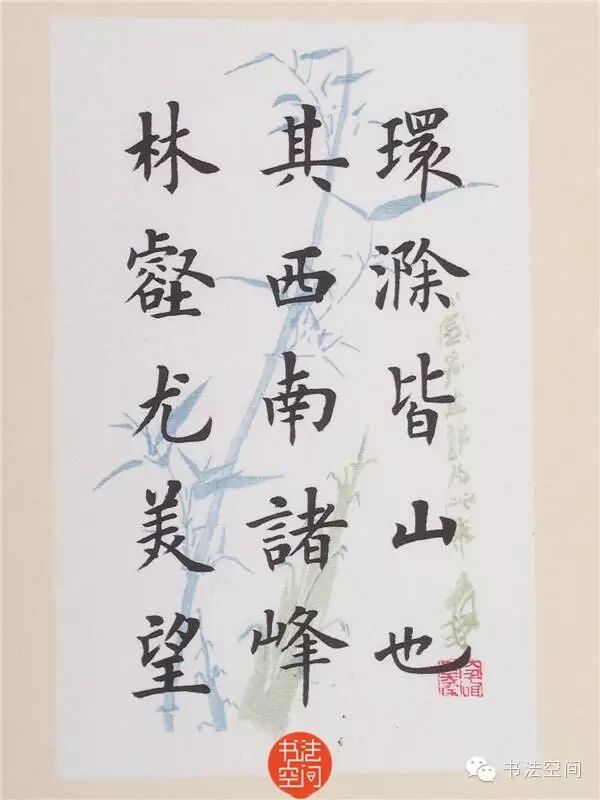 環滁皆山也
其西南諸峰
林壑尤美望
书法空间
书法空间